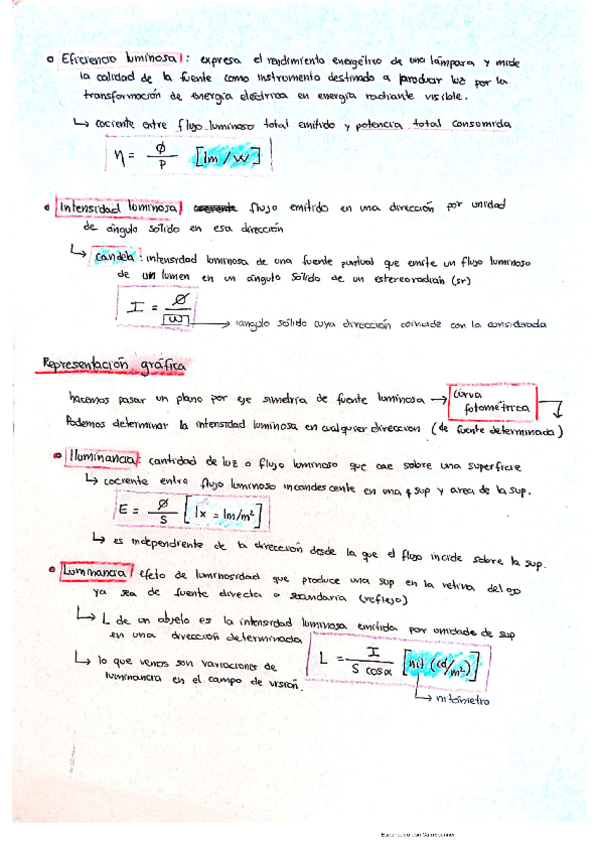 Eficiencia luminosa: expresa el rendimiento energético de una lámpara y mide
la calidad de la fuente como instrumento destinado a producir luz por la
transformación de energía eléctrica en energía radiante visible.
↳ cociente entre flujo luminoso total emitido y potencia total consumida
η = Ø / P [lm/W]
Intensidad luminosa flujo emitido en una dirección por unidad
de ángulo sólido en esa dirección
↳ candela: intensidad luminosa de una fuente puntual que emite un flujo luminoso
de un lumen en un ángulo sólido de un estereoradián (sr)
I = Ø / W → angulo sólido cuya dirección coincide con la considerada
Representación gráfica
hacemos pasar un plano por eje simetría de fuente luminosa → curva
fotométrica
Podemos determinar la intensidad luminosa en cualquier direccion (de fuente determinada)
Iluminancia: cantidad de luz o flujo luminoso que cae sobre una superficie
↳ cociente entre flujo luminoso incandescente en una sup y area de la sup.
E = Ø / S [lx = lm/m²]
↳ es independiente de la dirección desde la que el flujo incide sobre la sup.
Luminancia efeto de luminosidad que produce una sup en la retina del ojo
ya sea de fuente directa o secundaria (reflejo)
↳ L de un objeto es la intensidad luminosa emitida por unidade de sup
en una dirección determinada
L = I / S cosα [nit (cd/m²)]
↳ lo que vemos son variaciones de
luminancia en el campo de visión.
↳ nitómetro
Escaneado con CamScanner